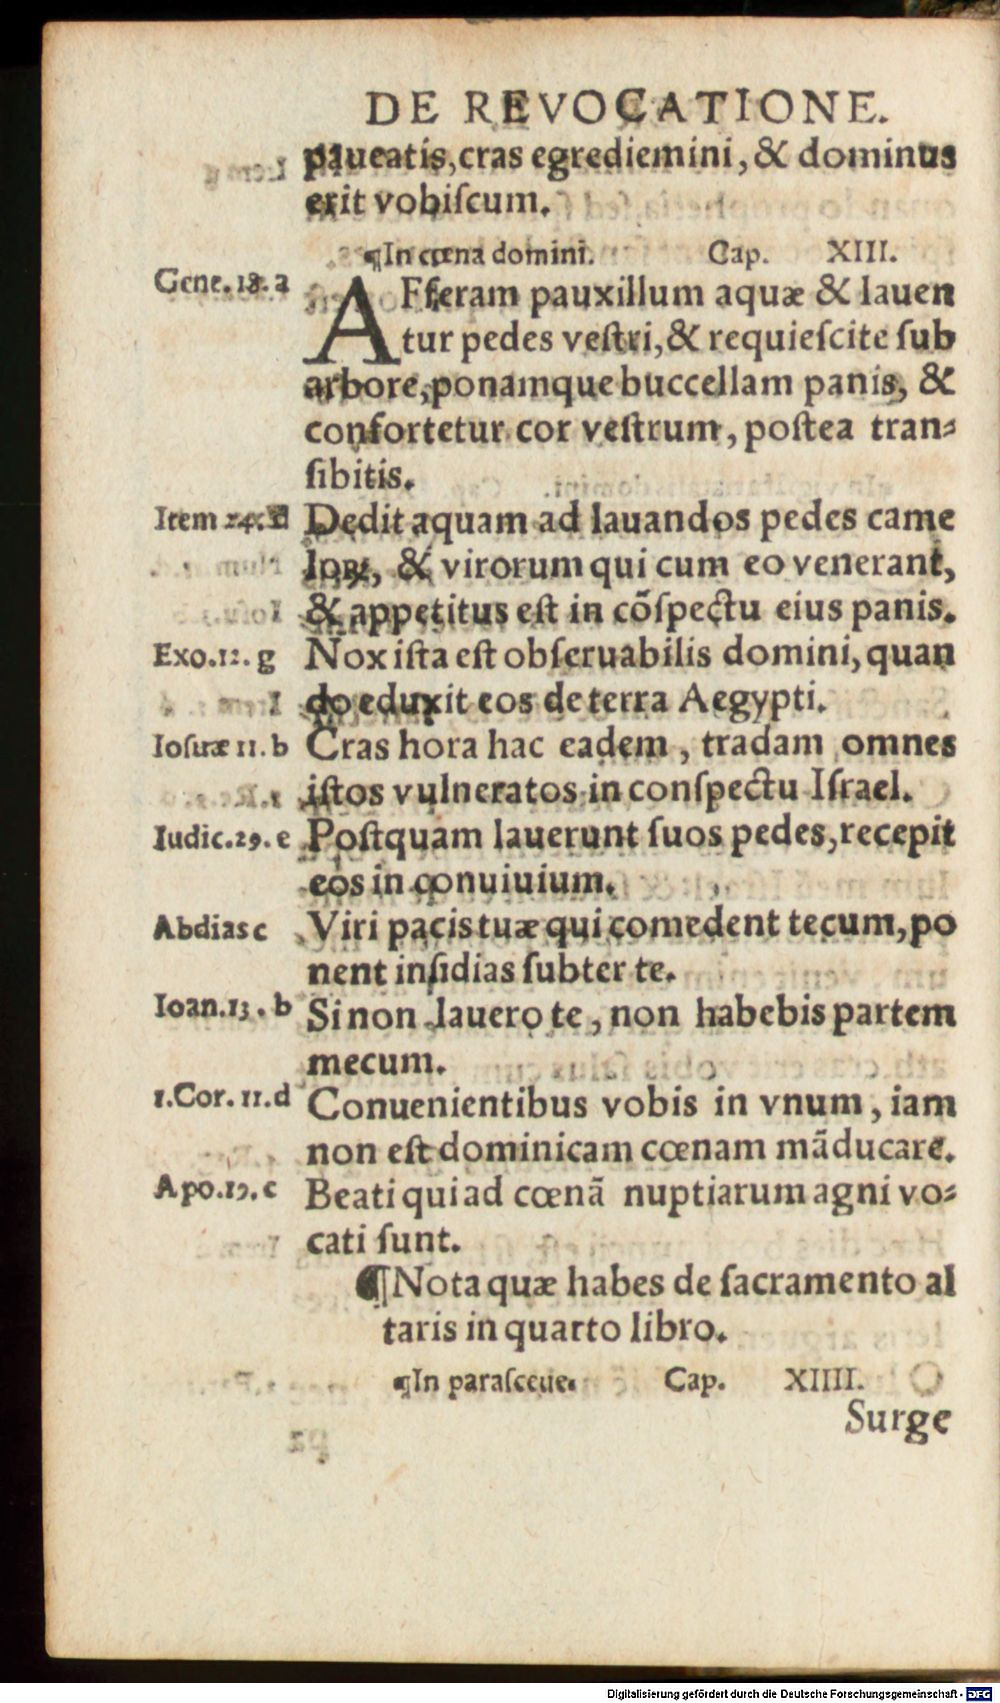 DE REVOCATIONE.
paueatis, cras egrediemini, & dominus
erit vobiſcum.
¶In cœna domini. Cap. XIII.
Gene. 18. a
AFferam pauxillum aquæ & lauen
tur pedes veſtri, & requieſcite ſub
arbore, ponamque buccellam panis, &
confortetur cor veſtrum, poſtea tran⸗
ſibitis.
Item 24. Dedit aquam ad lauandos pedes came
loꝝ, & virorum qui cum eo venerant,
& appetitus eſt in cōſpectu eius panis.
Exo. 12. g Nox iſta eſt obſeruabilis domini, quan
do eduxit eos de terra Aegypti.
Ioſuæ 11. b Cras hora hac eadem, tradam omnes
iſtos vulneratos in conſpectu Iſrael.
Iudic. 29. e Poſtquam lauerunt ſuos pedes, recepit
eos in conuiuium.
Abdias c Viri pacis tuæ qui comedent tecum, po
nent inſidias ſubter te.
Ioan. 13. b Si non lauero te, non habebis partem
mecum.
1. Cor. 11. d Conuenientibus vobis in vnum, iam
non eſt dominicam cœnam māducare.
Apo. 19. c Beati qui ad cœnā nuptiarum agni vo⸗
cati ſunt.
¶Nota quæ habes de ſacramento al
taris in quarto libro.
¶In paraſceue. Cap. XIIII.
Surge
Digitalisierung gefördert durch die Deutsche Forschungsgemeinschaft - DFG